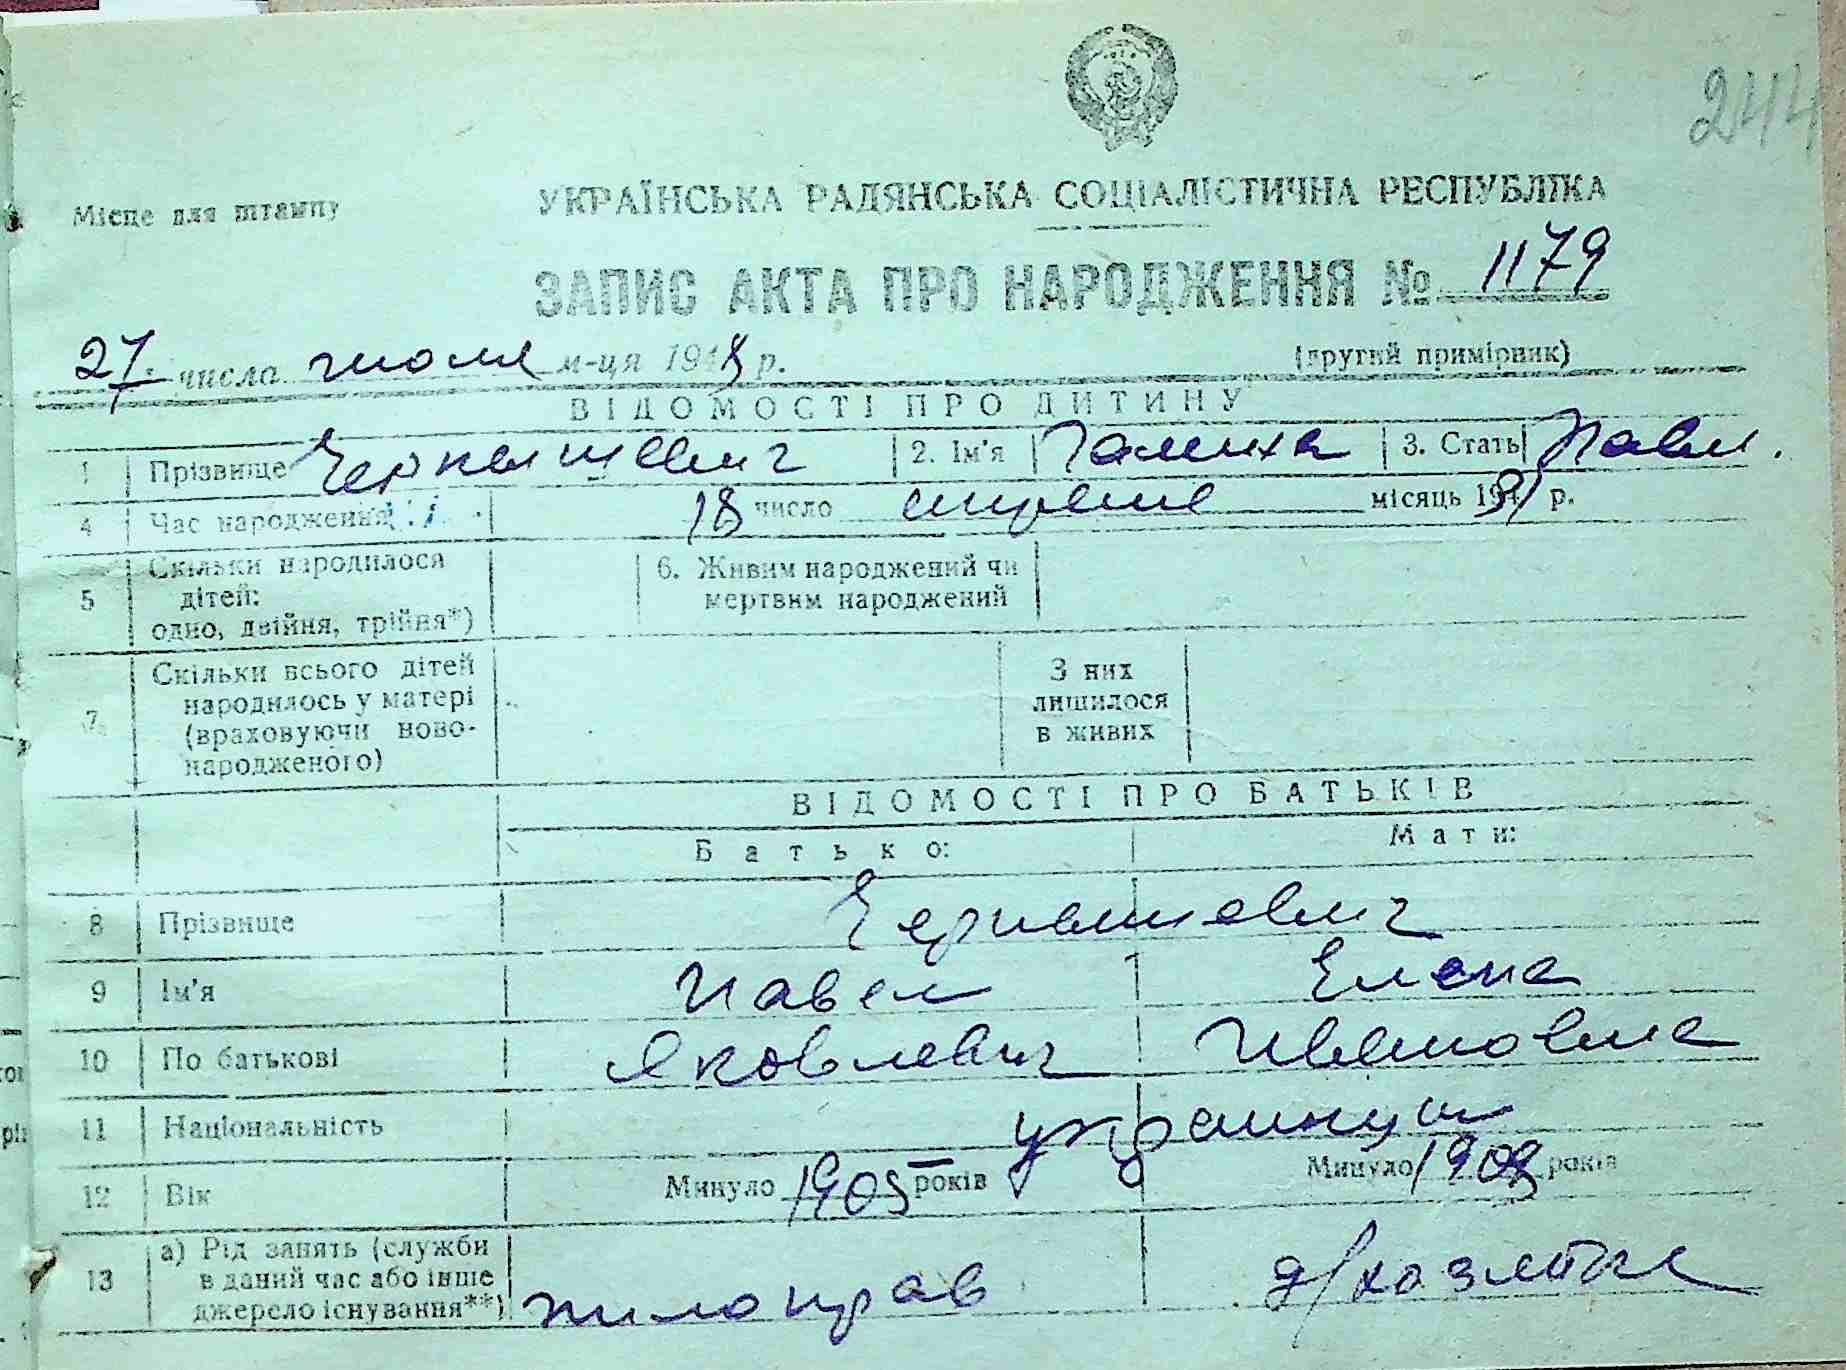 244
Місце для штампу
УКРАЇНСЬКА РАДЯНСЬКА СОЦІАЛІСТИЧНА РЕСПУБЛІКА
ЗАПИС АКТА ПРО НАРОДЖЕННЯ № 1179
27 числа июля м-ця 1948 р. (другий примірник)
ВІДОМОСТІ ПРО ДИТИНУ
1 Прізвище Чернышевич 2. Ім'я Галина 3. Стать
4 Час народження 18 число апреля місяць 1931 р.
5 Скільки народилося дітей: одно, двійня, трійня*) 6. Живим народжений чи мертвим народжений
7 Скільки всього дітей народилось у матері (враховуючи новонародженого) З них лишилося в живих
ВІДОМОСТІ ПРО БАТЬКІВ
Батько: Мати:
8 Прізвище Чернышевич
9 Ім'я Павел Елена
10 По батькові Яковлевич Ивановна
11 Національність украинцы
12 Вік Минуло 1905 років Минуло років
13 а) Рід занять (служби в даний час або інше джерело існування**) д/хозяйка